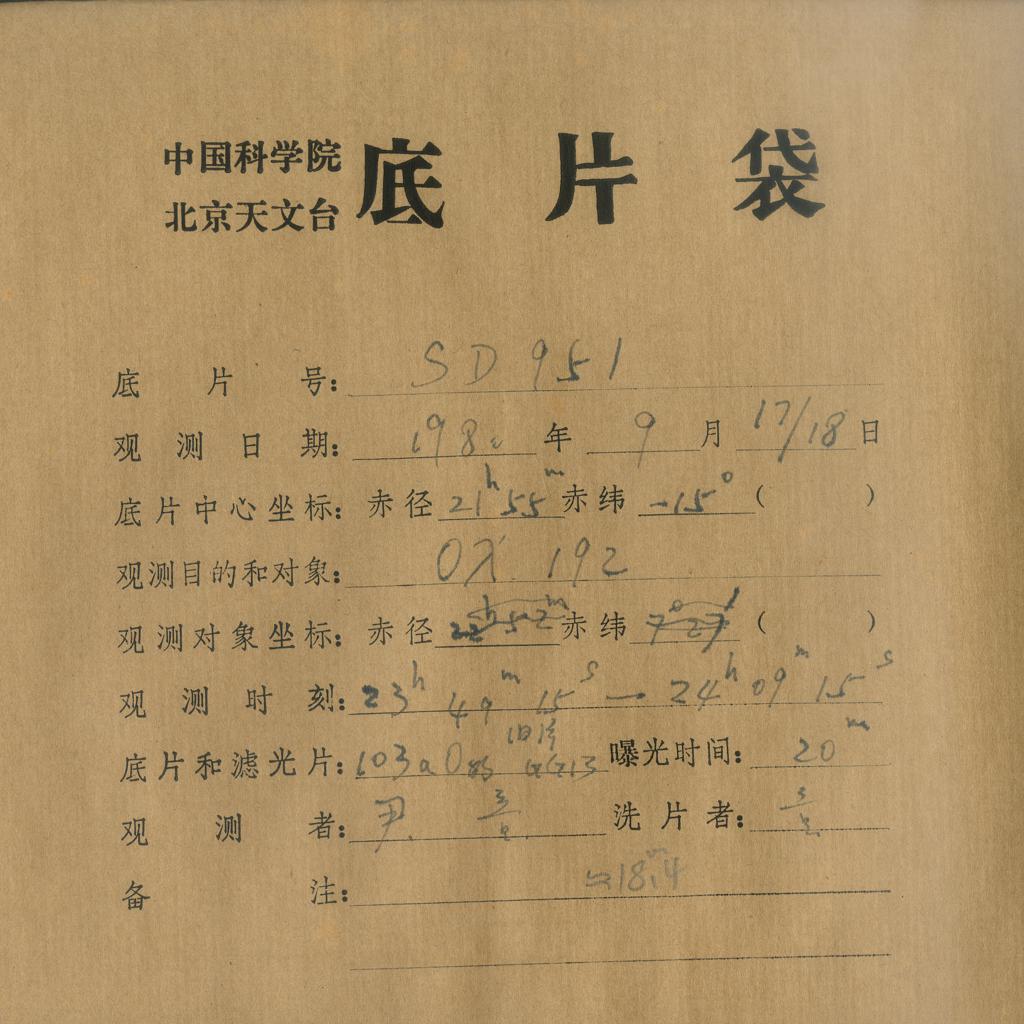 中国科学院
北京天文台
底片袋
底片号: SD 951
观测日期: 198 年 9 月 17/18 日
底片中心坐标: 赤径 21h 55m 赤纬 -15° ( )
观测目的和对象: OX 192
观测对象坐标: 赤径 22h 52m 赤纬 7° 27′ ( )
观测时刻: 23h 49m 15s — 24h 09m 15s
底片和滤光片: 103aO GG13 曝光时间: 20m
观测者: 尹. 洗片者:
备注: ≈18m.4